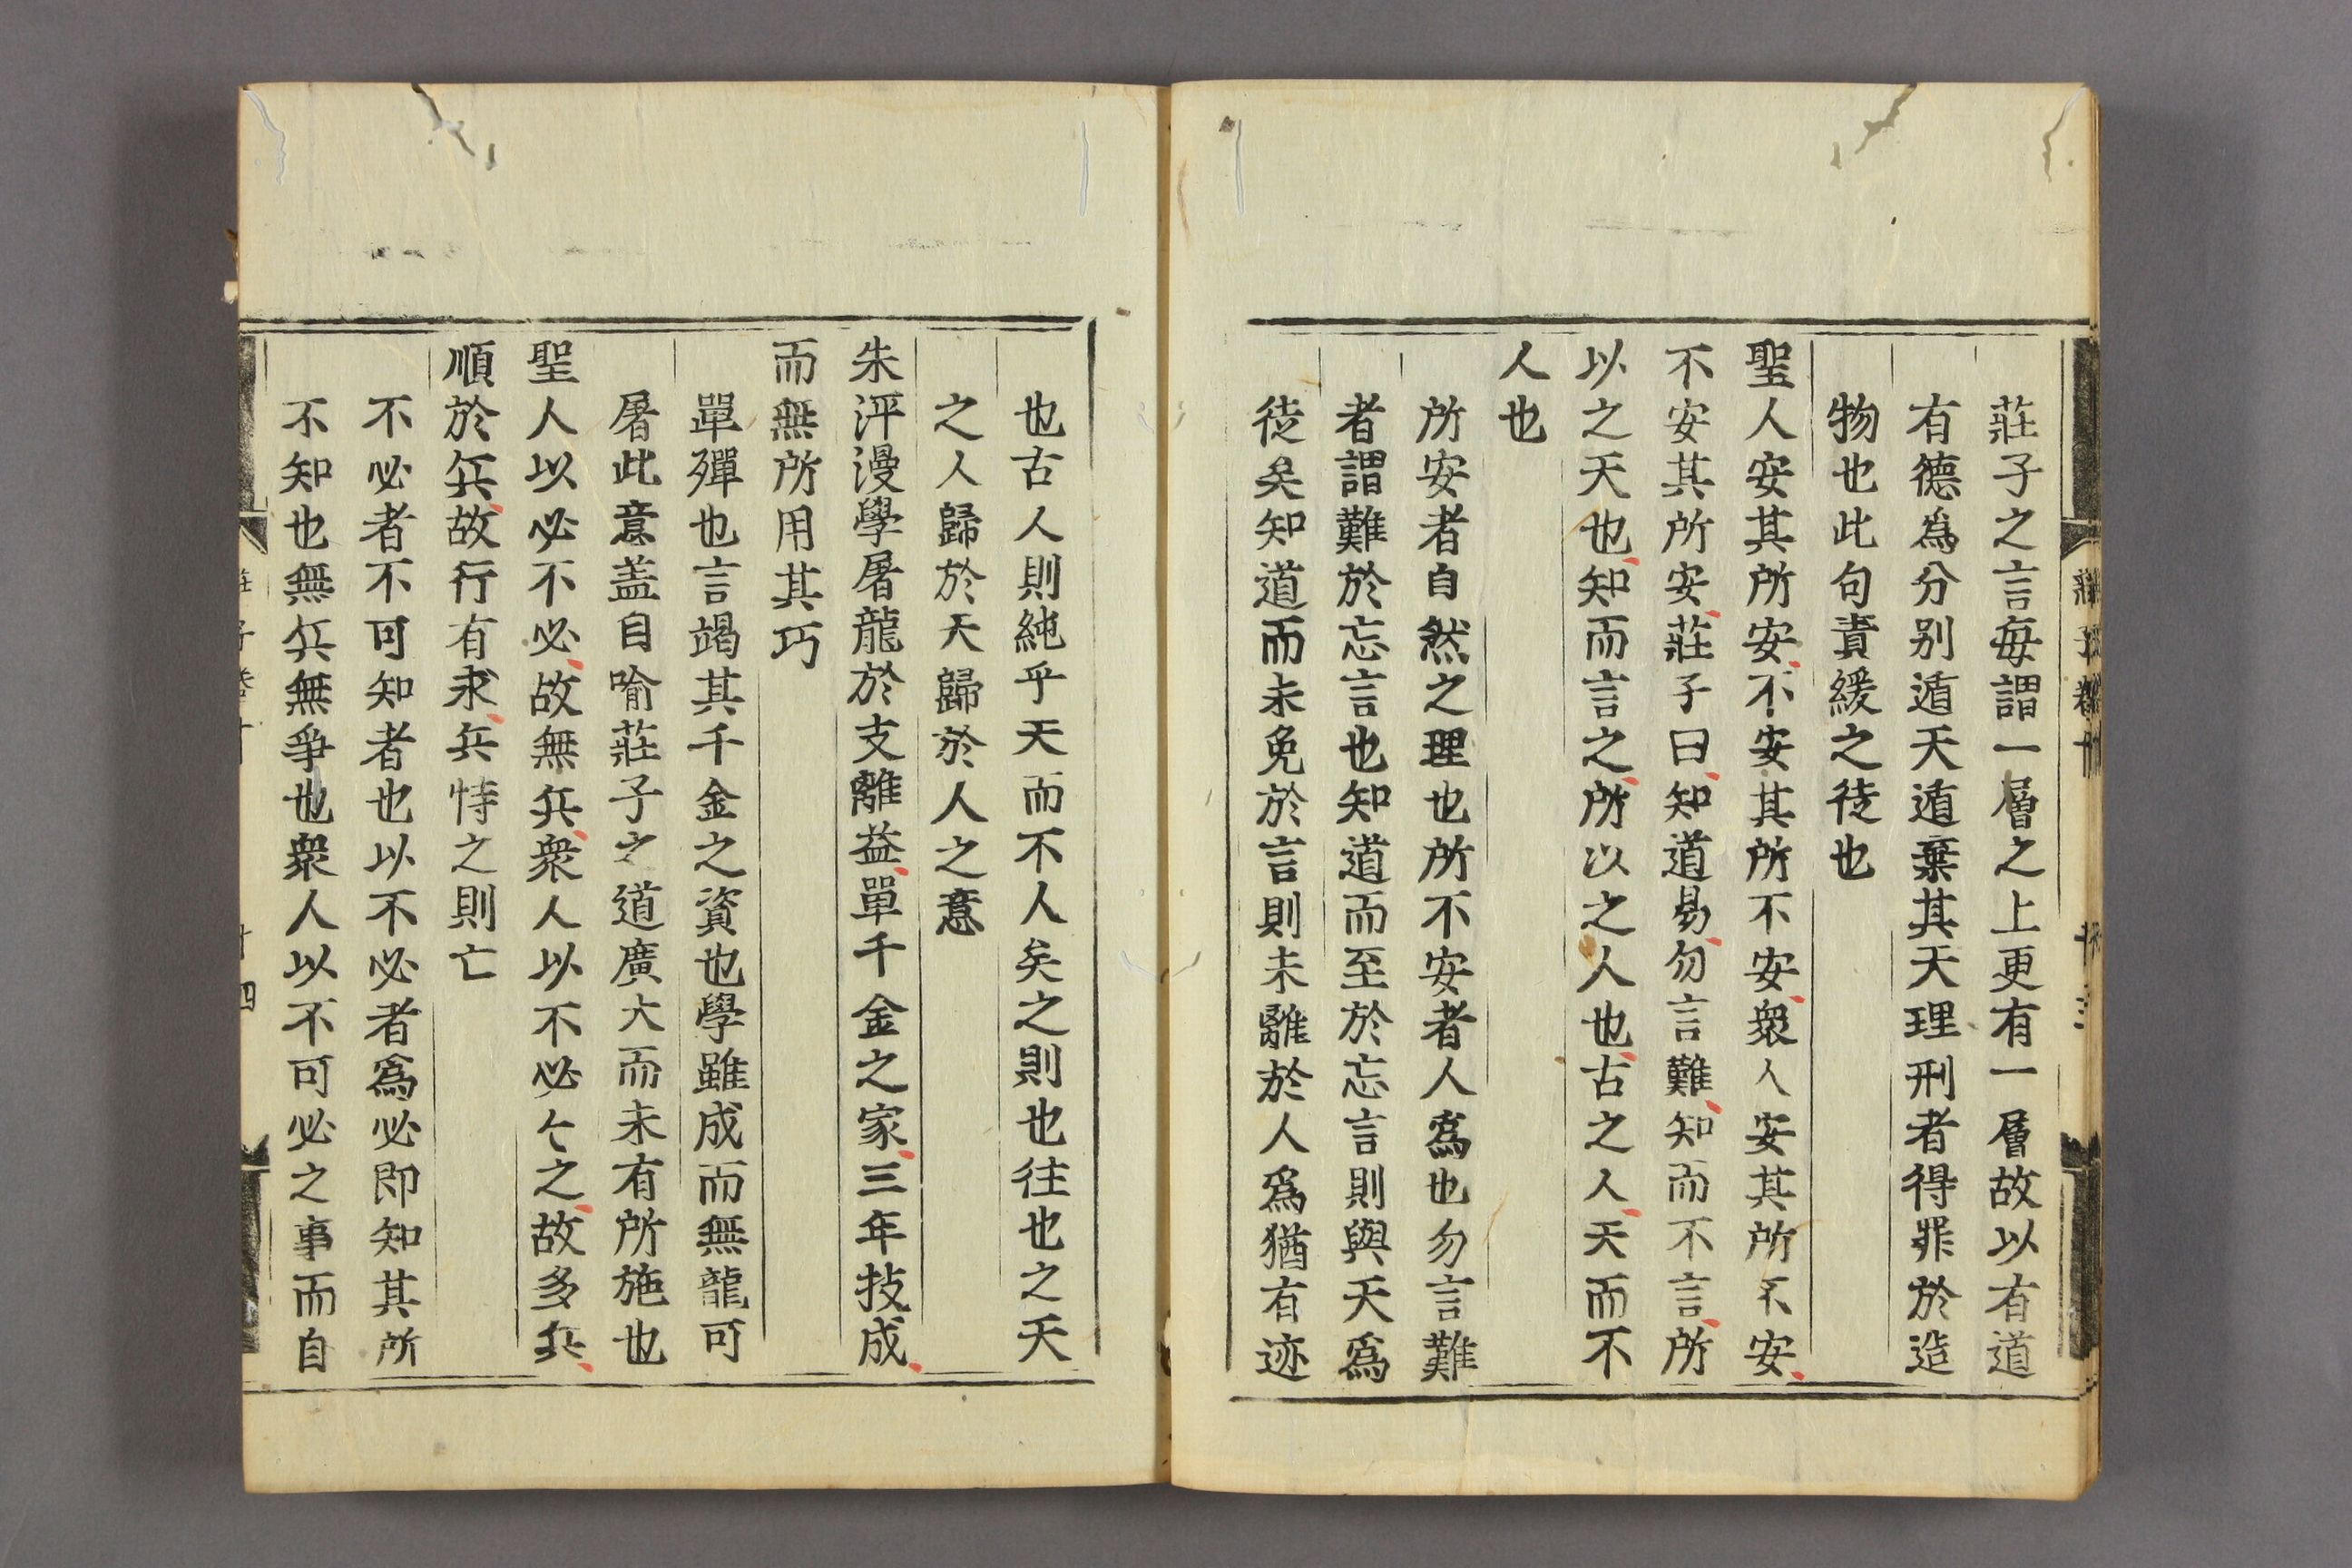 莊子之言每謂一層之上更有一層故以有道
有德爲分别遁天遁棄其天理刑者得罪於造
物也此句責緩之徒也
聖人安其所安不安其所不安衆人安其所不安
不安其所安莊子曰知道易勿言難知而不言所
以之天也知而言之所以之人也古之人天而不
人也
所安者自然之理也所不安者人爲也勿言難
者謂難於忘言也知道而至於忘言則與天爲
徒矣知道而未免於言則未離於人爲猶有迹
也古人則純乎天而不人矣之則也往也之天
之人歸於天歸於人之意
朱泙漫學屠龍於支離益單千金之家三年技成
而無所用其巧
單殫也言竭其千金之資也學雖成而無龍可
屠此意盖自喻莊子之道廣大而未有所施也
聖人以必不必故無兵衆人以不必〻之故多兵
順於兵故行有求兵恃之則亡
不必者不可知者也以不必者爲必即知其所
不知也無兵無爭也衆人以不可必之事而自
十四